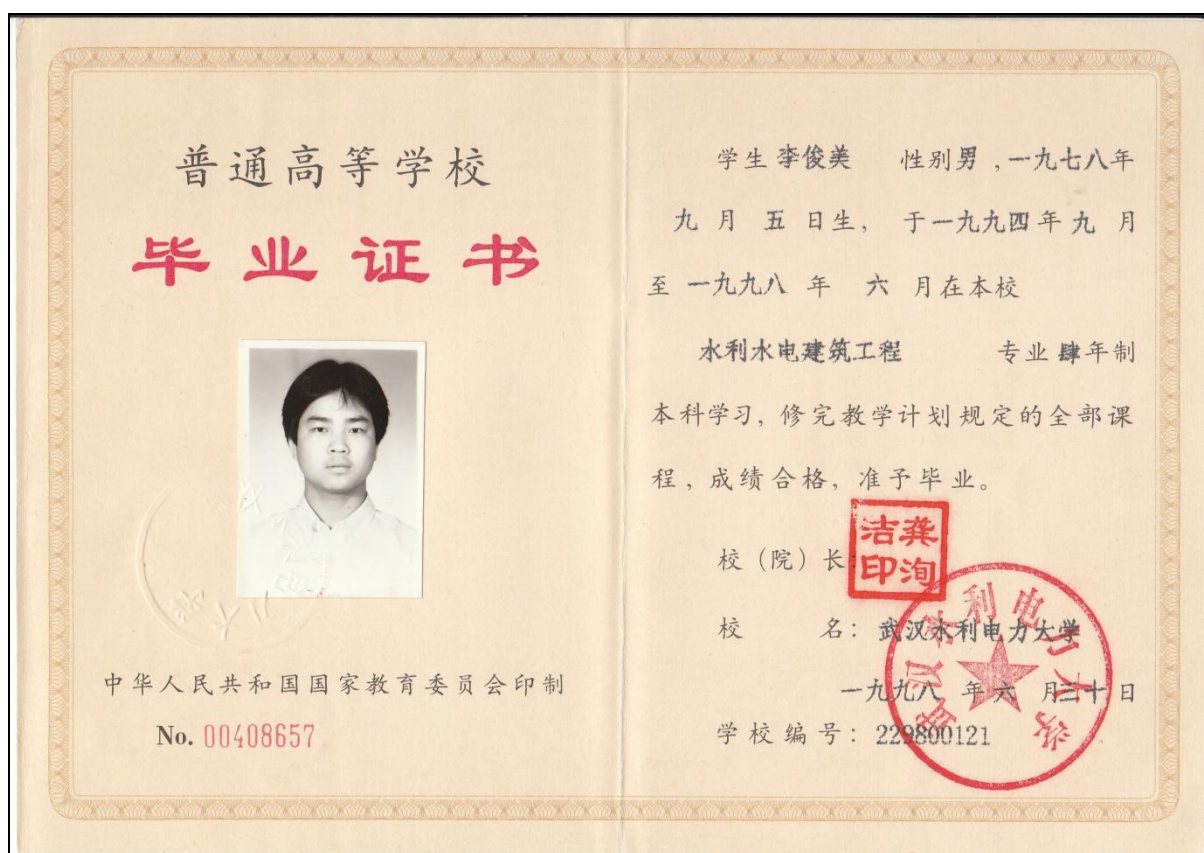 普通高等学校
毕业证书
中华人民共和国国家教育委员会印制
No. 00408657
学生 李俊美 性别 男 ,一九七八年
九 月 五 日生, 于一九九四年九 月
至 一九九八 年 六 月在本校
水利水电建筑工程 专业 肆年制
本科学习, 修完教学计划规定的全部课
程, 成绩合格, 准予毕业。
校(院)长:
龚洵洁印
校 名: 武汉水利电力大学
一九九八 年六 月三十日
学校编号: 229800121
武汉水利电力大学